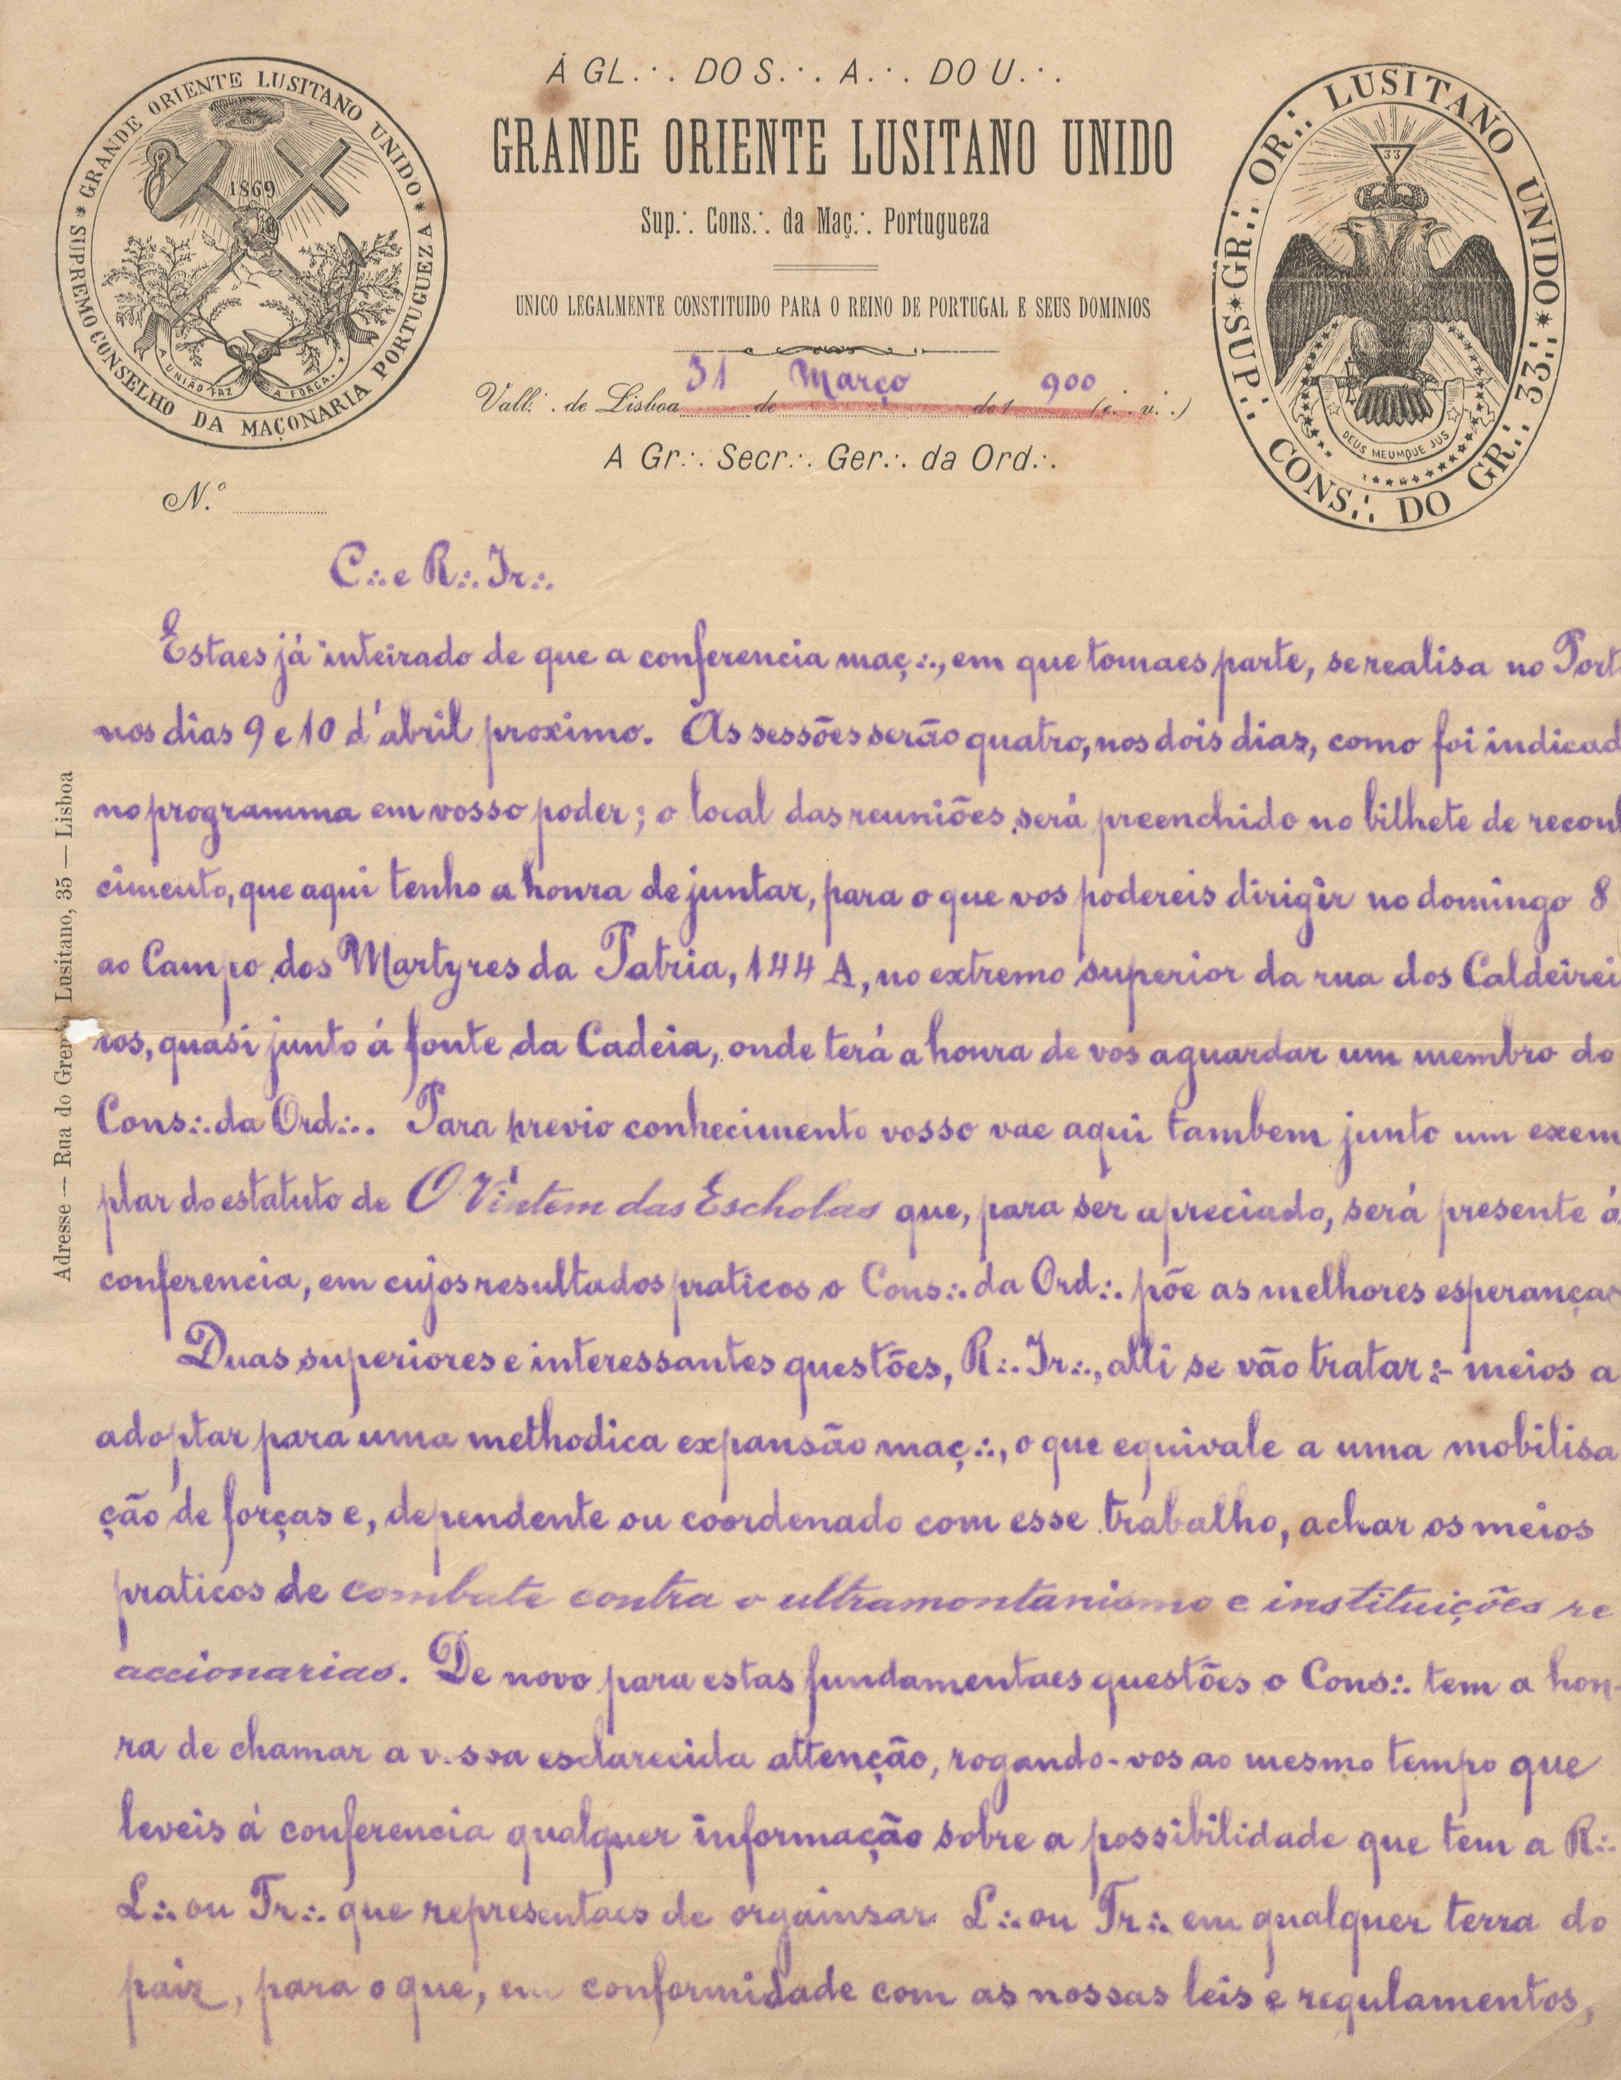 Á GL.·. DO S.·. A.·. DO U.·.
GRANDE ORIENTE LUSITANO UNIDO
Sup.·. Cons.·. da Maç.·. Portugueza
UNICO LEGALMENTE CONSTITUIDO PARA O REINO DE PORTUGAL E SEUS DOMINIOS
Vall.·. de Lisboa 31 de Março de 1 900 (e.·. v.·.)
A Gr.·. Secr.·. Ger.·. da Ord.·.
N.º
* GRANDE ORIENTE LUSITANO UNIDO * SUPREMO CONSELHO DA MAÇONARIA PORTUGUEZA
1869
A UNIÃO FAZ A FORÇA
GR.·. OR.·. LUSITANO UNIDO * SUP.·. CONS.·. DO GR.·. 33.·. *
33
DEUS MEUMQUE JUS
Adresse — Rua do Gremio Lusitano, 35 — Lisboa
C.·. e R.·. Ir.·.
Estaes já inteirado de que a conferencia maç.·., em que tomaes parte, se realisa no Port
nos dias 9 e 10 d'abril proximo. As sessões serão quatro, nos dois dias, como foi indicad
no programma em vosso poder; o local das reuniões será preenchido no bilhete de reconh
cimento, que aqui tenho a honra de juntar, para o que vos podereis dirigir no domingo 8
ao Campo dos Martyres da Patria, 144 A, no extremo superior da rua dos Caldeirei
ros, quasi junto á fonte da Cadeia, onde terá a honra de vos aguardar um membro do
Cons.·. da Ord.·.. Para previo conhecimento vosso vae aqui tambem junto um exem
plar do estatuto de O Vintem das Escholas que, para ser apreciado, será presente á
conferencia, em cujos resultados praticos o Cons.·. da Ord.·. põe as melhores esperanças
Duas superiores e interessantes questões, R.·. Ir.·., alli se vão tratar:- meios a
adoptar para uma methodica expansão maç.·., o que equivale a uma mobilisa
ção de forças e, dependente ou coordenado com esse trabalho, achar os meios
praticos de combate contra o ultramontanismo e instituições re
accionarias. De novo para estas fundamentaes questões o Cons.·. tem a hon-
ra de chamar a vossa esclarecida attenção, rogando-vos ao mesmo tempo que
leveis á conferencia qualquer informação sobre a possibilidade que tem a R.·.
L.·. ou Tr.·. que representaes de orgainsar L.·. ou Tr.·. em qualquer terra do
paiz, para o que, em conformidade com as nossas leis e regulamentos,